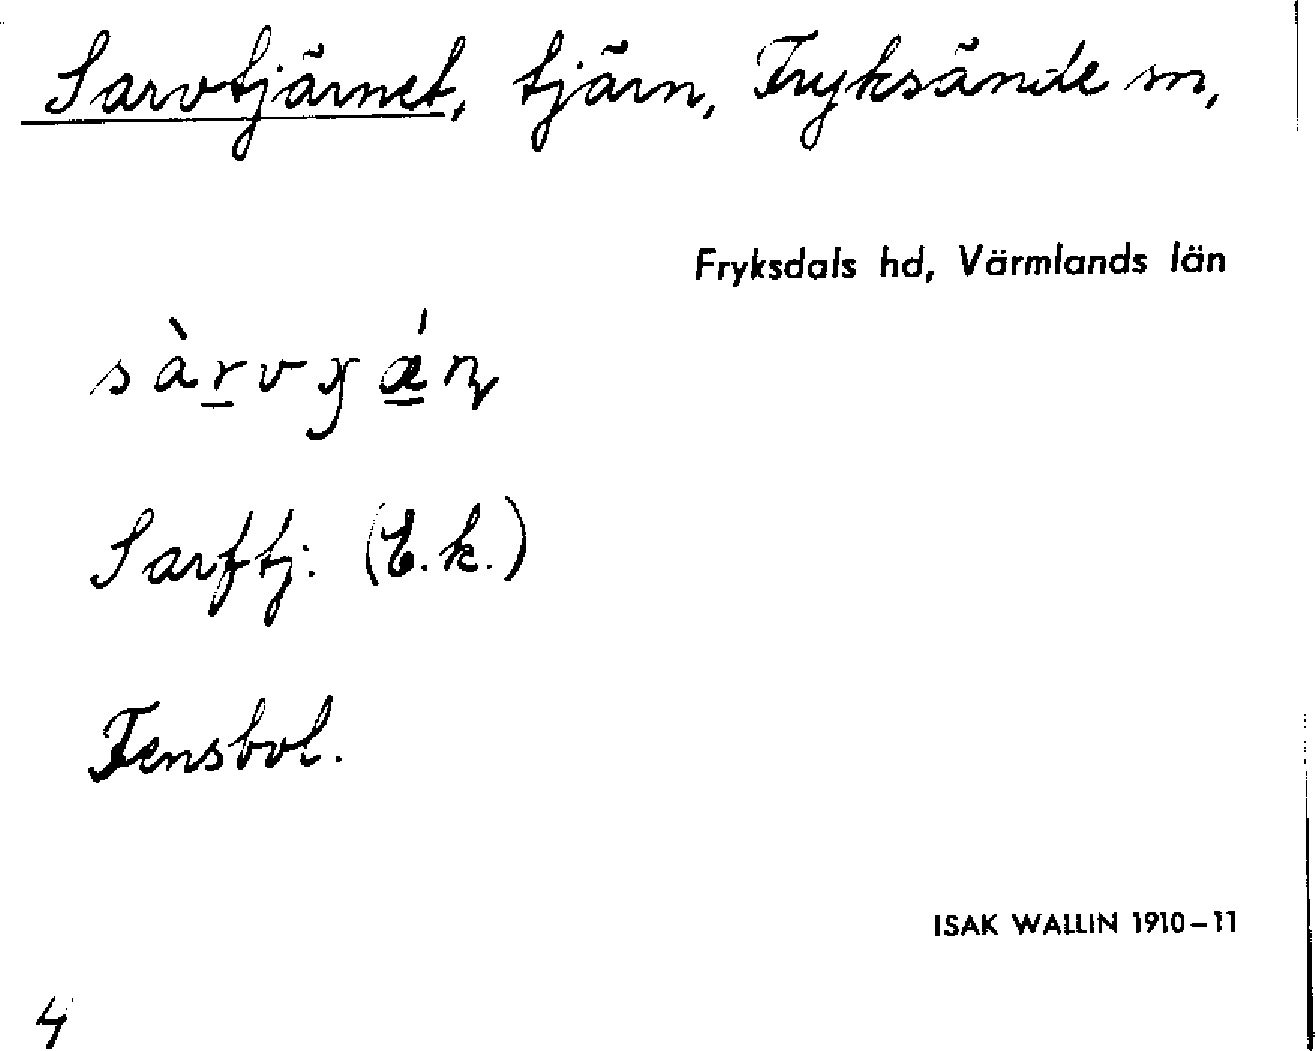 Sarvtjärnet, tjärn, Fryksände sn,
Fryksdals hd, Värmlands län
Sarftj. (E.k.)
Fensbol.
ISAK WALLIN 1910–11
4